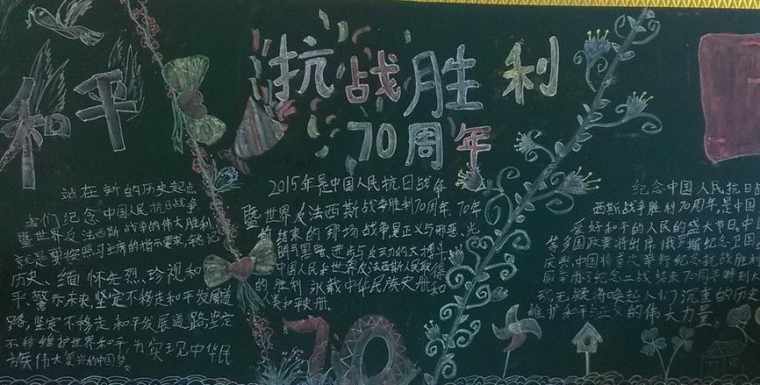 和平
抗战胜利
70周年
站在新的历史起点
我们纪念中国人民抗日战争
暨世界反法西斯战争的伟大胜利
就是要按照习主席的指示要求,铭记
历史、缅怀先烈、珍视和
平、警示未来,坚定不移走和平发展道
路,坚定不移走和平发展道路,坚定
不移维护世界和平,为实现中华民
族伟大复兴的中国梦
2015年是中国人民抗日战争
暨世界反法西斯战争胜利70周年,70年
前结束的那场战争是正义与邪恶,光
明与黑暗,进步与反动的大搏斗
中国人民和世界反法西斯人民取得
的胜利 永载中华民族史册和
人类和史册
70
纪念中国人民抗日战
西斯战争胜利70周年,是中国
爱好和平的人民的盛大节日,中
等多国政要将出席 俄罗斯纪念卫国
庆典,中国将首次举行纪念抗战胜利
纪念二战结束70周年
将唤起人们沉重的历史
维护和平正义的伟大力量。